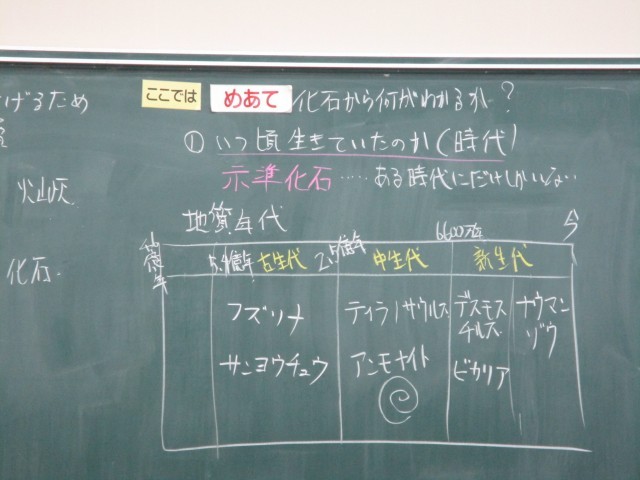 げるため
火山灰
化石.
ここでは めあて 化石から何がわかるか?
① いつ頃 生きていたのか(時代)
示準化石……ある時代にだけしかいない
地質年代
46億年 5.4億年 古生代 2.5億年 中生代 6600万年 新生代 今
フズリナ ティラノサウルス デスモスチルス ナウマンゾウ
サンヨウチュウ アンモナイト ビカリア